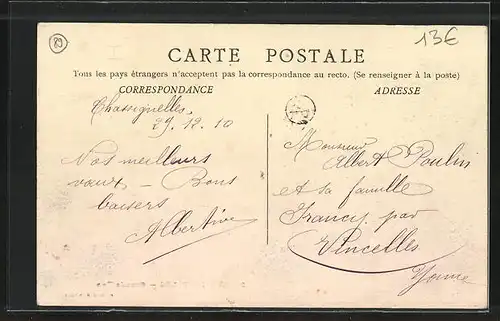 89
13€
CARTE POSTALE
Tous les pays étrangers n'acceptent pas la correspondance au recto. (Se renseigner à la poste)
CORRESPONDANCE
Chassignelles,
29.12.10
Nos meilleurs
vœux – Bons
baisers
Albertine
ADRESSE
Monsieur
Albert Poulin
et sa famille
Irancy par
Vincelles
Yonne